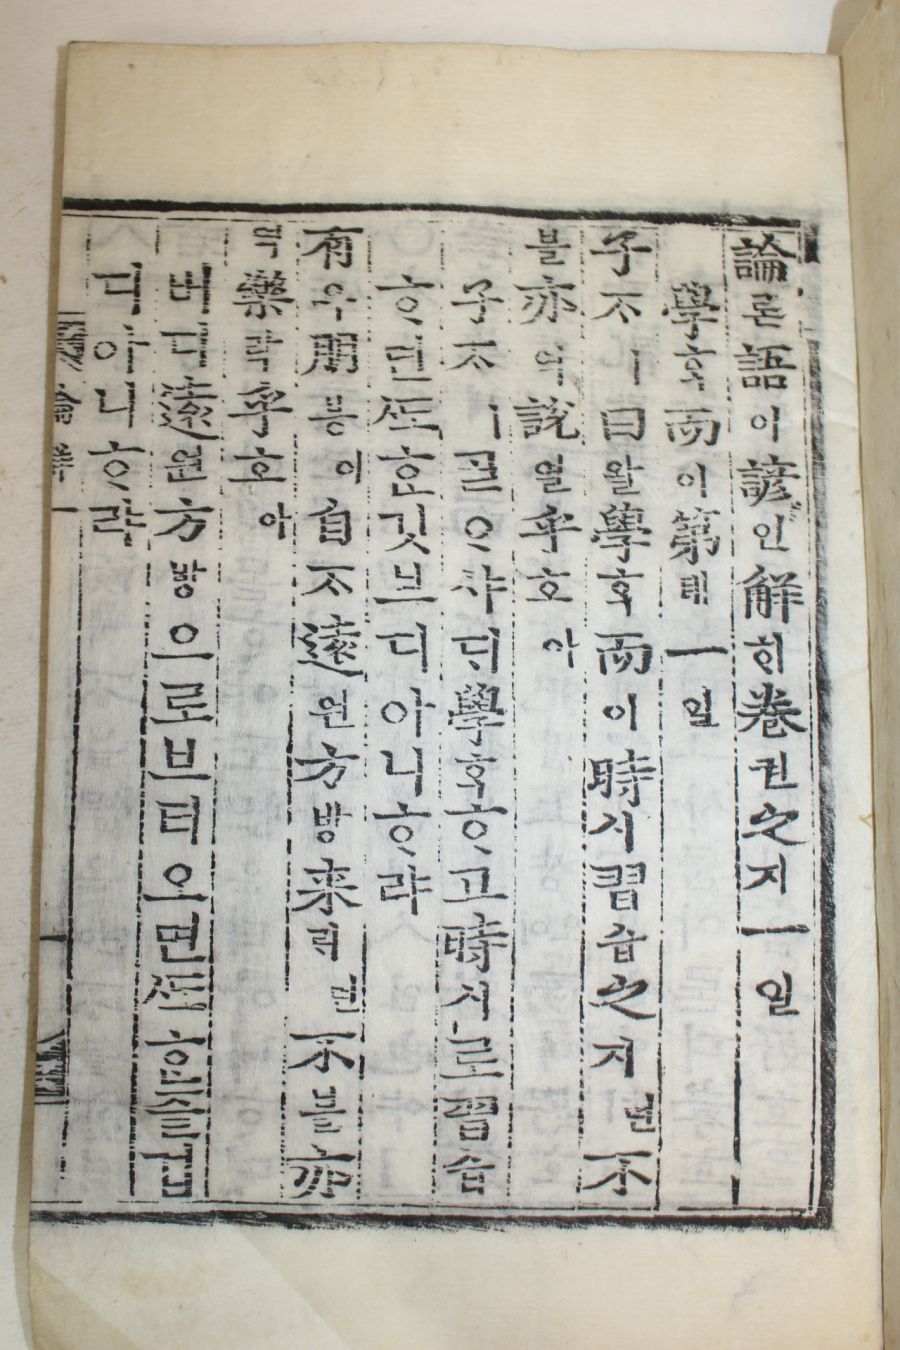 論론語이諺인解ᄒᆡ卷권之지一일
學ᄒᆞᆨ而이第뎨一일
子ᄌᆞㅣ曰왈學ᄒᆞᆨ而이時시習습之지면不
블亦역說열乎호아
子ᄌᆞㅣᄀᆞᆯᄋᆞ샤ᄃᆡ學ᄒᆞᆨᄒᆞ고時시로習습
ᄒᆞ면ᄯᅩᄒᆞᆫ깃브디아니ᄒᆞ랴
有유朋붕이自ᄌᆞ遠원方방來ᄅᆡ면不블亦
역樂락乎호아
버디遠원方방으로브터오면ᄯᅩᄒᆞᆫ즐겁
디아니ᄒᆞ랴